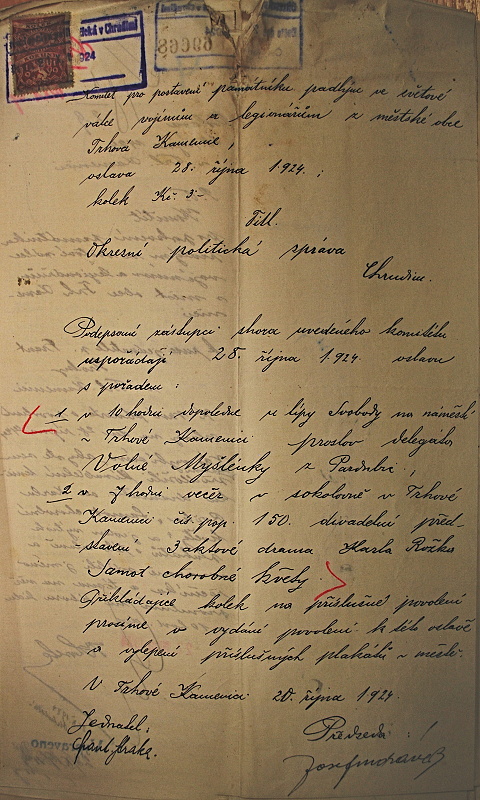 tická v Chrudimi
1924
69668
Komitét pro postavení památníku padlým ve světové
válce vojínům a legionářům z městské obce
Trhová Kamenice,
oslava 28. října 1924.;
kolek Kč. 3-
Titl.
Okresní politická správa
Chrudim.
Podepsaní zástupci shora uvedeného komitétu
uspořádají 28. října 1924. oslavu
s pořadem:
1 v 10 hodin dopoledne u lípy Svobody na náměstí
v Trhové Kamenici proslov delegáta
Volné Myšlénky z Pardubic,
2 v 7 hodin večer v sokolovně v Trhové
Kamenici čís. pop. 150. divadelní před-
stavení 3 aktové drama Karla Rožka
Samot chorobné květy.
Přikládajíce kolek na příslušné povolení
prosíme v vydání povolení k této oslavě
a vylepení příslušných plakátů v městě.
V Trhové Kamenici 20. října 1924.
Jednatel: Předseda: